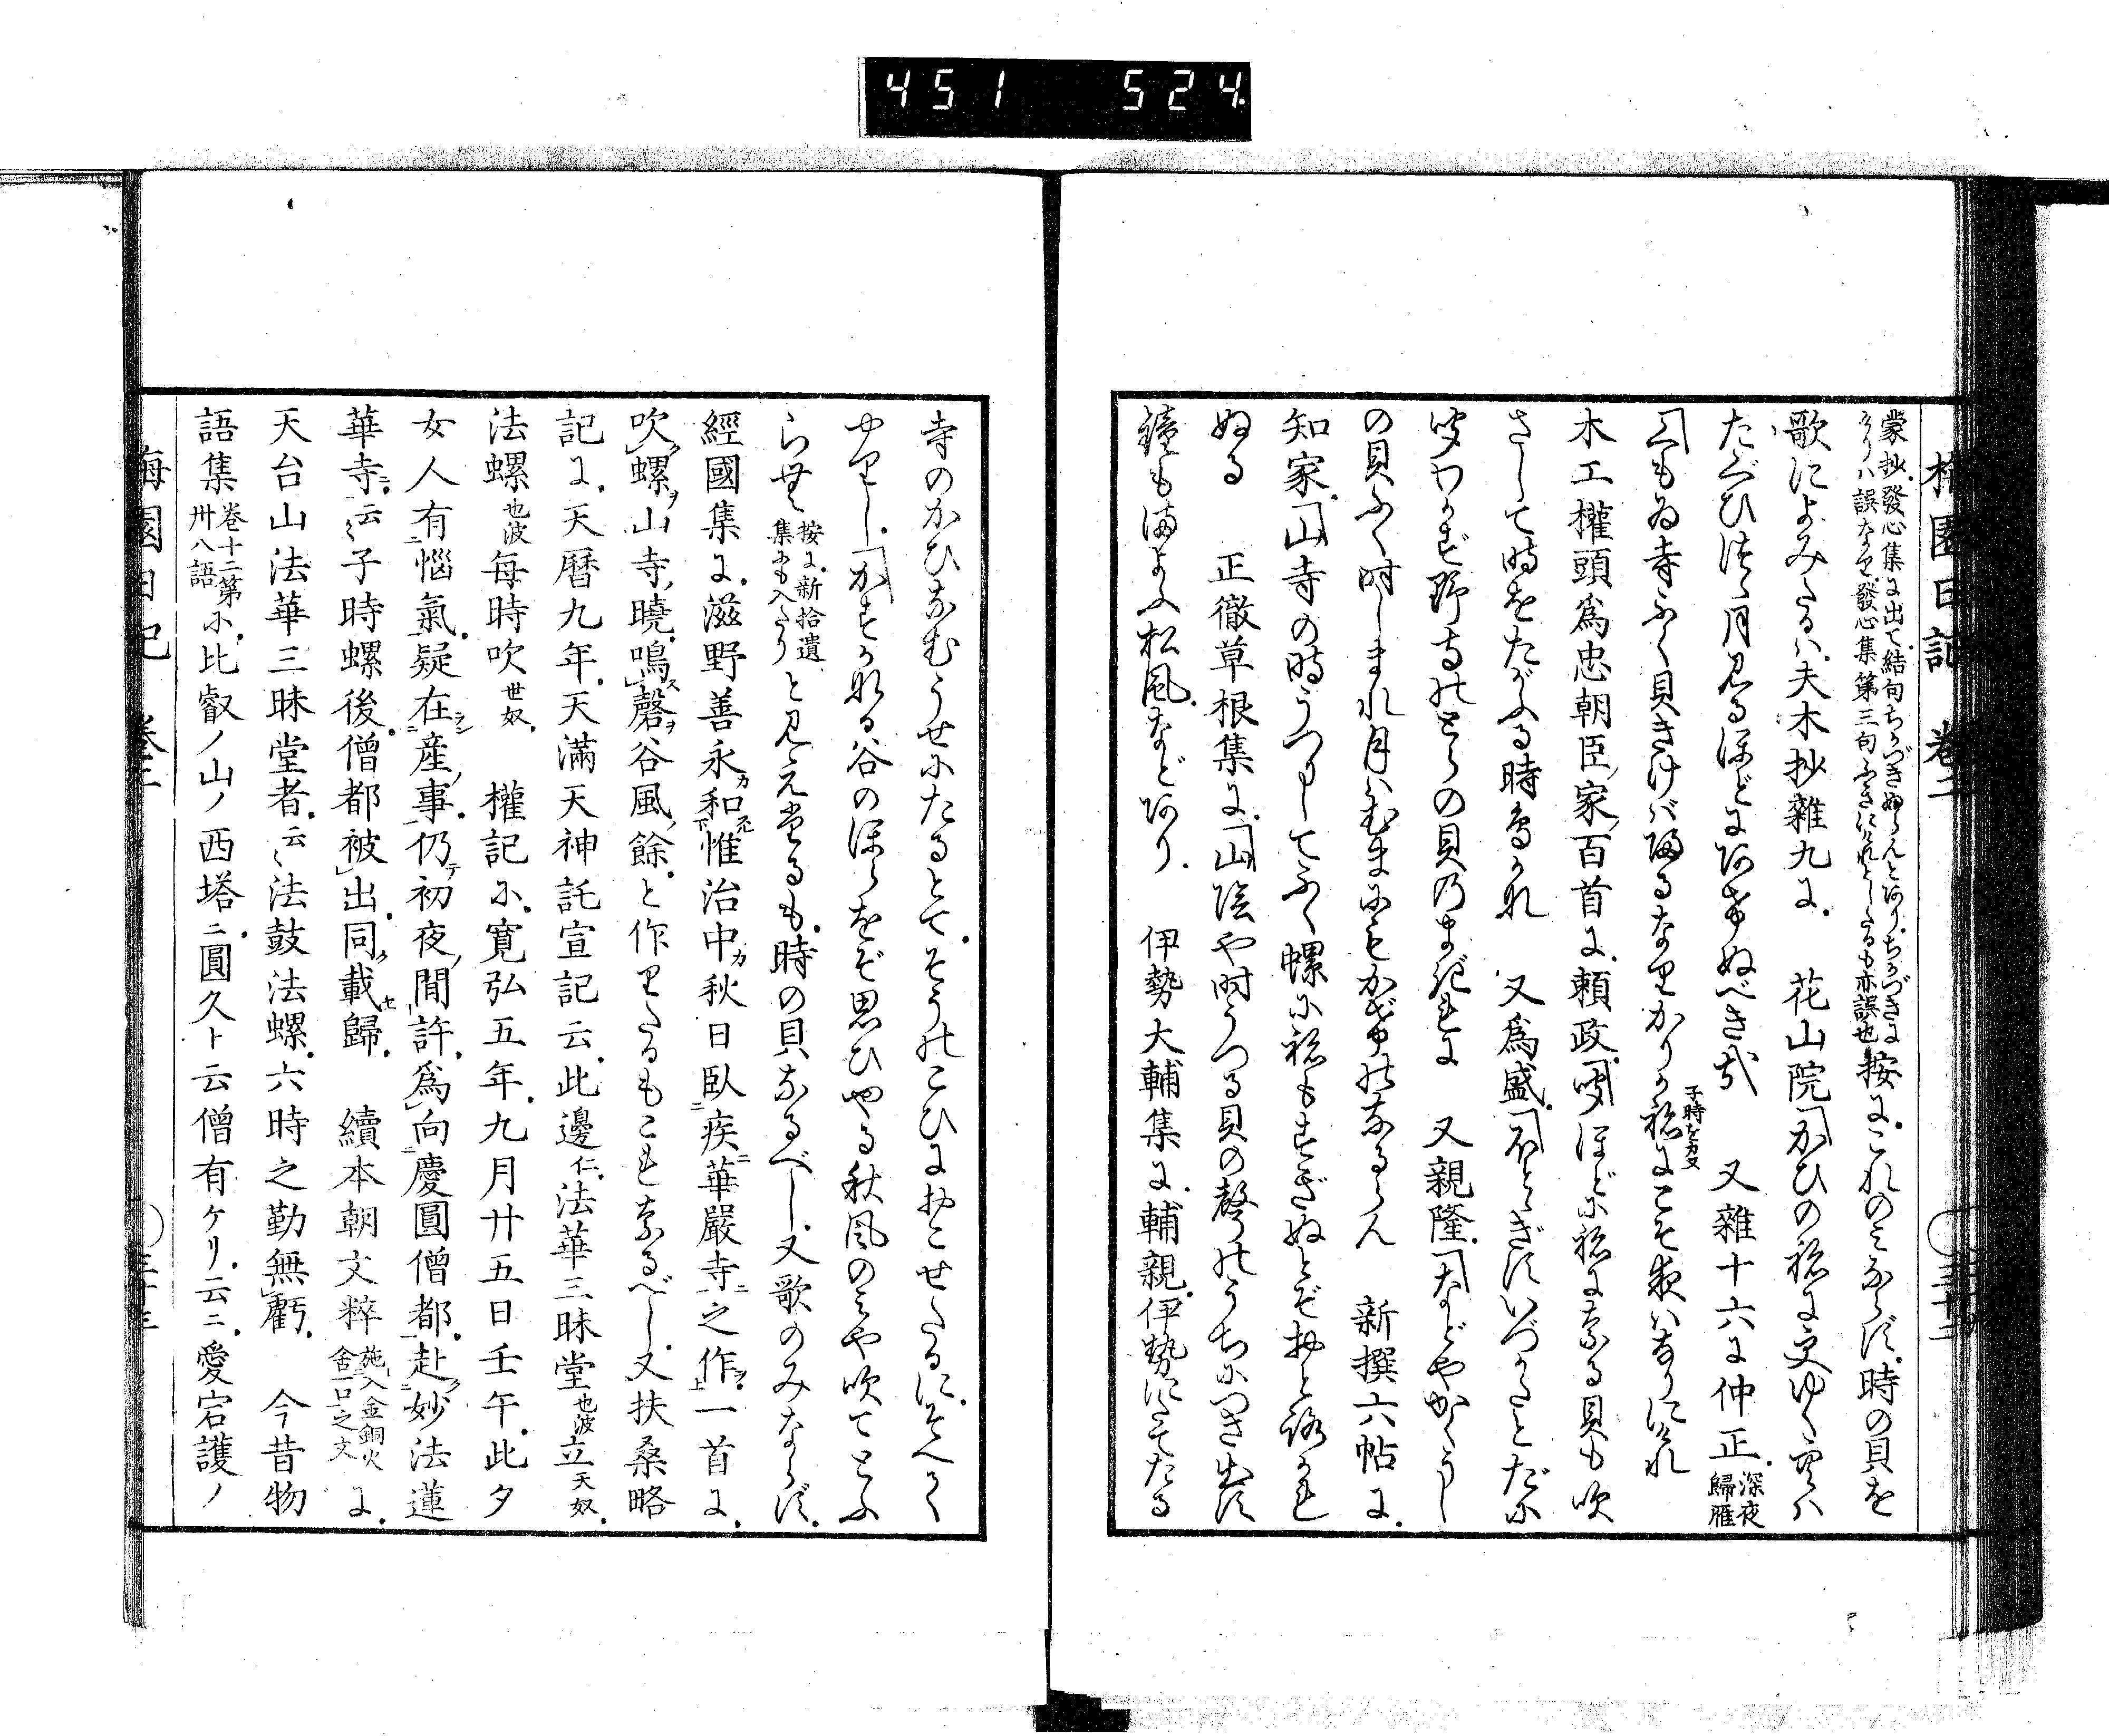 451 524
梅園日記 卷二
蒙抄發心集に出て結句ちかづきぬらんとありちかづきに
けりハ誤なり發心集第三句ふきにけれとしたるも亦誤也按にこれのみならず時の貝を
歌によみたるハ夫木抄雜九に 花山院「かひの鐘に更ゆく空ハ
たぐひつゝ月見るほどにあけぬべき哉 又雜十六に仲正深夜歸雁
「みゐ寺ふく貝きけバかへるなりかりがねにこそ夜ハなりにけれ
子時をカ又
木工權頭爲忠朝臣ノ家ノ百首に頼政「聞ほどに鐘になる貝も吹
さして時をたがふる時鳥かな 又爲盛「ほとゝぎすいづかたとだに
聞わかず野寺のとらの貝のまぎれに 又親隆「などやかくうし
の貝ふく時しまれ月ハむまにもかゝげのなるらん 新撰六帖に
知家「山寺の時うつりしてふく螺に鐘もすぎぬとぞおどろかれ
ぬる 正徹草根集に「山陰や時うつる貝の聲のうちにつき出す
鐘もまよふ松風などあり 伊勢大輔集に輔親伊勢にてたる
寺のかひなむうせにたるとてそのこひにおこせたるにそへて
やりし「かすかなる谷のほらをぞ思ひやる秋風のミや吹てとふ
らむ按に新拾遺集にも入たりと見えたるも時の貝なるべし又歌のみならず
經國集に滋野善永和惟治中秋日臥疾華嚴寺之作一首に
吹螺山寺曉鳴磬谷風餘と作りたるもこれなるべし又扶桑略
記に天暦九年天滿天神託宣記云此邊仁法華三昧堂也波立天奴
法螺也波毎時吹世奴 權記に寛弘五年九月廿五日壬午此夕
女人有惱氣疑在産事仍初夜ノ間許爲向慶圓僧都赴妙法蓮
華寺云〻子時螺後僧都被出同載歸 續本朝文粹施入金銅火舎一口之文に
天台山法華三昧堂者云〻法鼓法螺六時之勤無虧 今昔物
語集卷十二第卅八語に比叡ノ山ノ西塔ニ圓久ト云僧有ケリ云ニ愛宕護ノ
梅園日記 卷二